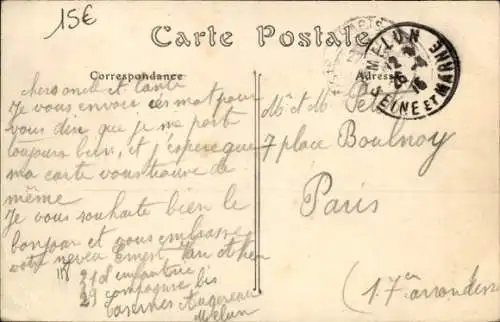 15€
Carte Postale
Correspondance
Adresse
MELUN
SEINE ET MARNE
chers oncle et tante
Je vous envoi ces mot pour
vous dire que je me porte
toujours bien, et j'espere que
ma carte vous trouve de
même
Je vous souhaite bien le
bonjour et vous embrasse
votre neveu Ernest
31 d'infanterie
29 compagnie bis
Casernes Augereau
Melun
Mr et M
7 place Boulnoy
Paris
(17em arrondisse